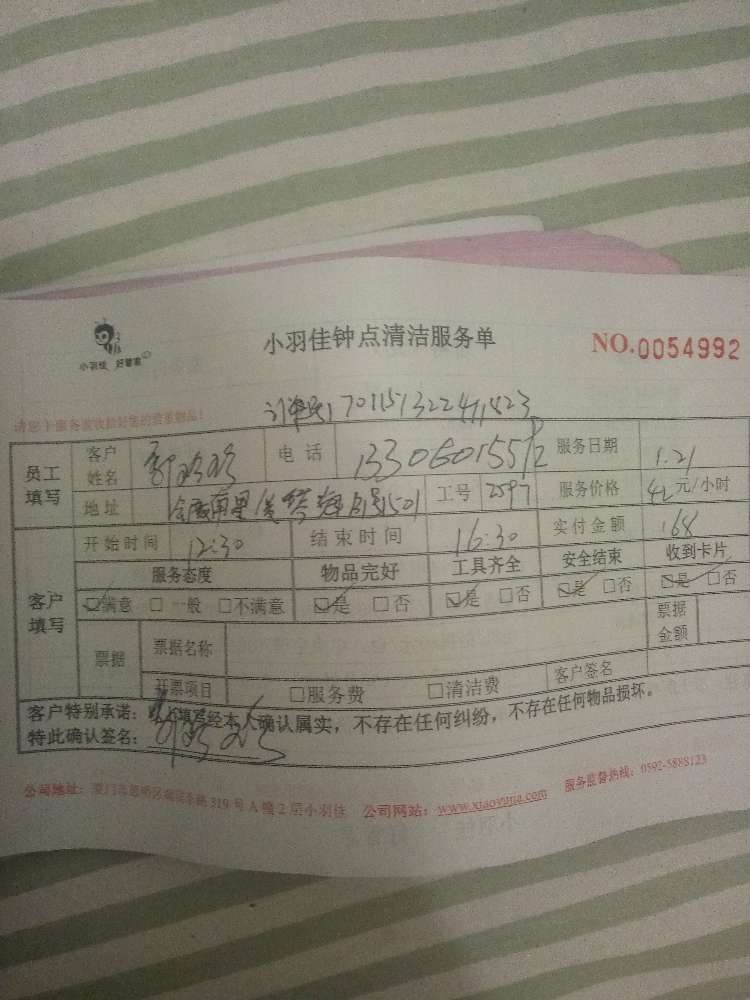 小羽佳 好管家
小羽佳钟点清洁服务单
NO.0054992
请您于服务前收拾好您的贵重物品!
员工填写 客户姓名 电话 服务日期 1.21
地址 工号 2597 服务价格 42元/小时
客户填写 开始时间 12:30 结束时间 16:30 实付金额 168
服务态度 物品完好 工具齐全 安全结束 收到卡片
☑满意 □一般 □不满意 ☑是 □否 ☑是 □否 ☑是 □否 ☑是 □否
票据 票据名称 票据金额
开票项目 □服务费 □清洁费 客户签名
客户特别承诺:以上填写经本人确认属实,不存在任何纠纷,不存在任何物品损坏。
特此确认签名:
公司地址:厦门市思明区 319号A幢2层小羽佳 公司网站:www.xiaoyujia.com 服务监督热线:0592-5888123